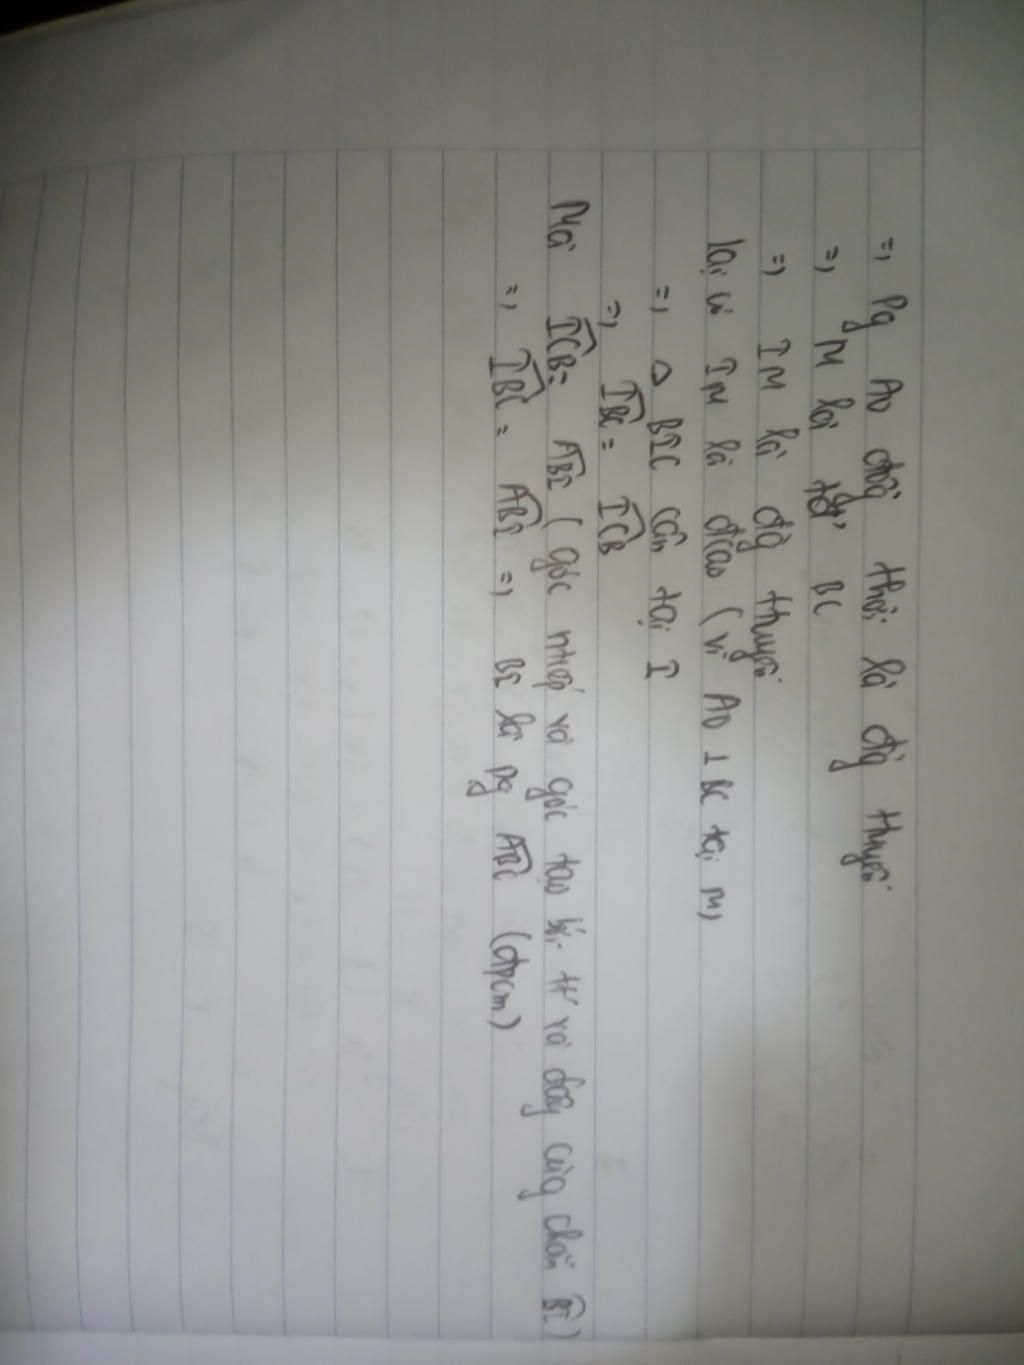 =, Pg AO đồg thời là đg̀ truyến
=, M là tđ' BC
=, IM là đg̀ truyến
lại có IM là đ/cao (vì AO ⊥ BC tại M)
=, Δ BIC cân tại I
=, IBC = ICB
Mà ICB = ABI ( góc ntiếp và góc tạo bởi tt' và dây cùg chắn BI )
=, IBC = ABI =, BI là pg ABC (đpcm)